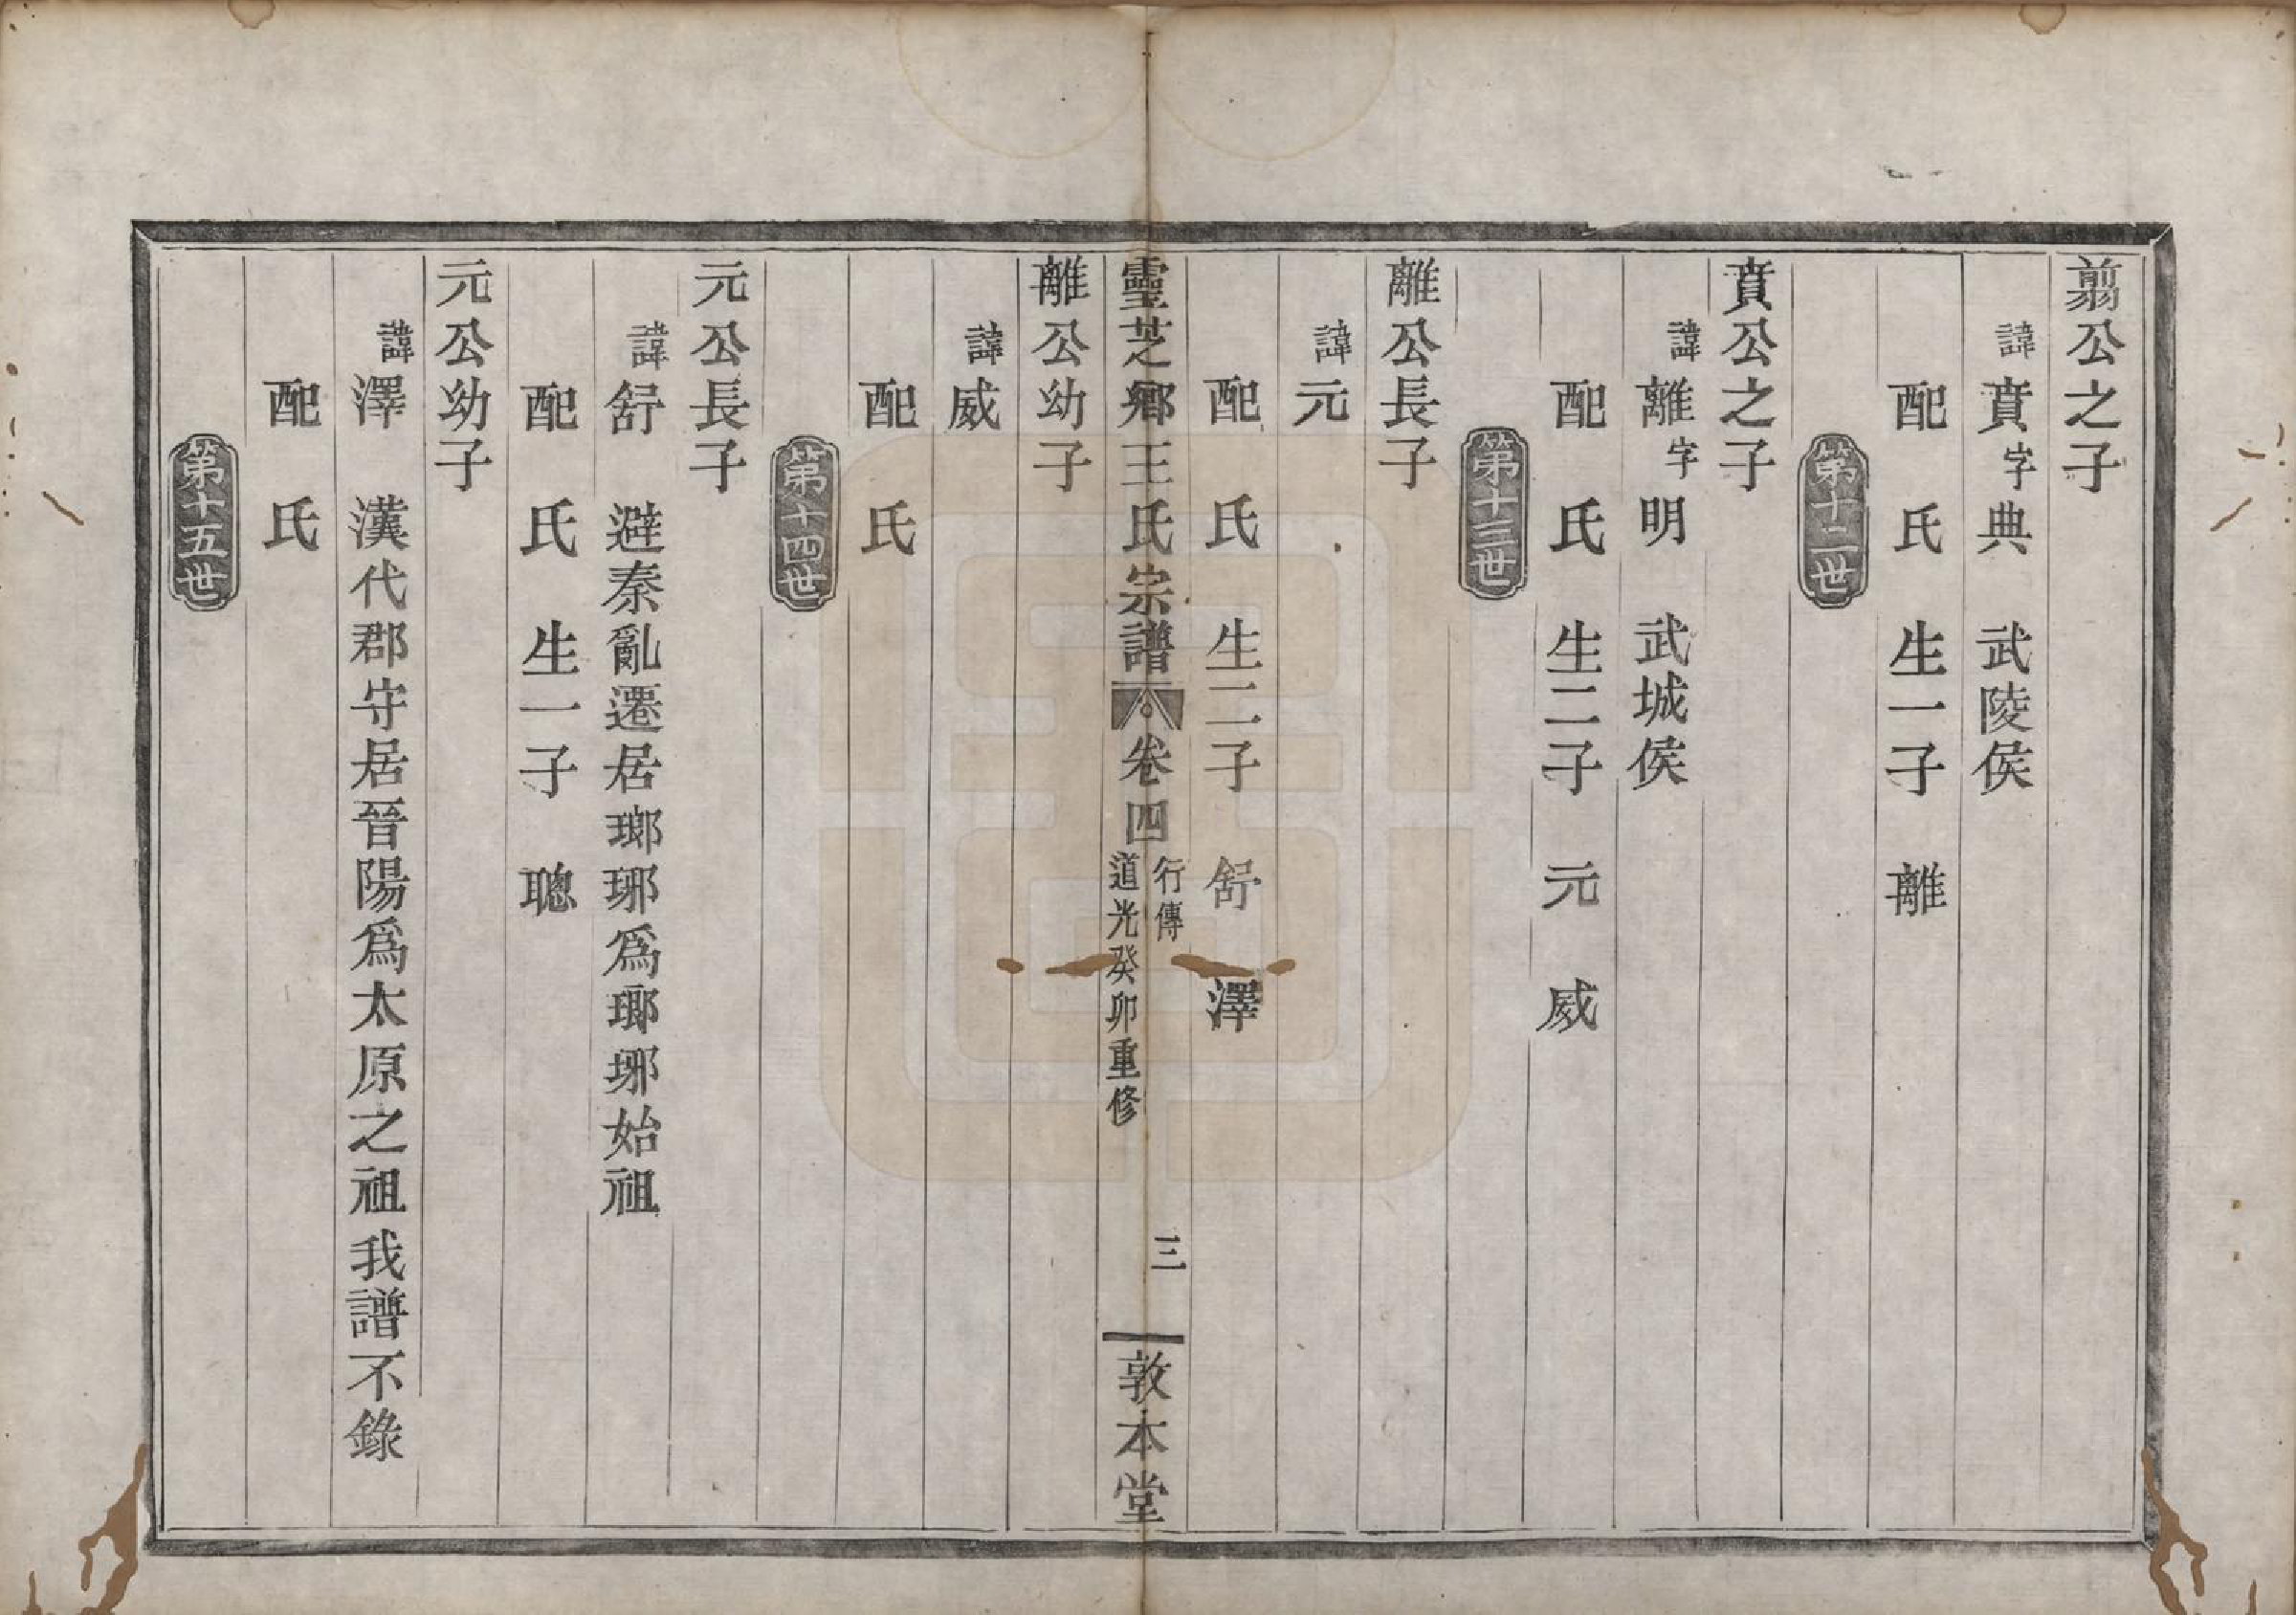 翦公之子
諱賁字典　武陵侯
配　氏　生一子　離
第十二世
賁公之子
諱離字明　武城侯
配　氏　生二子　元　威
第十三世
離公長子
諱元
配　氏　生二子　舒　澤
靈芝鄉王氏宗譜　卷四　行傳　道光癸卯重修　三　敦本堂
離公幼子
諱威
配　氏
第十四世
元公長子
諱舒　避秦亂遷居瑯琊爲瑯琊始祖
配　氏　生一子　聰
元公幼子
諱澤　漢代郡守居晉陽爲太原之祖我譜不錄
配　氏
第十五世